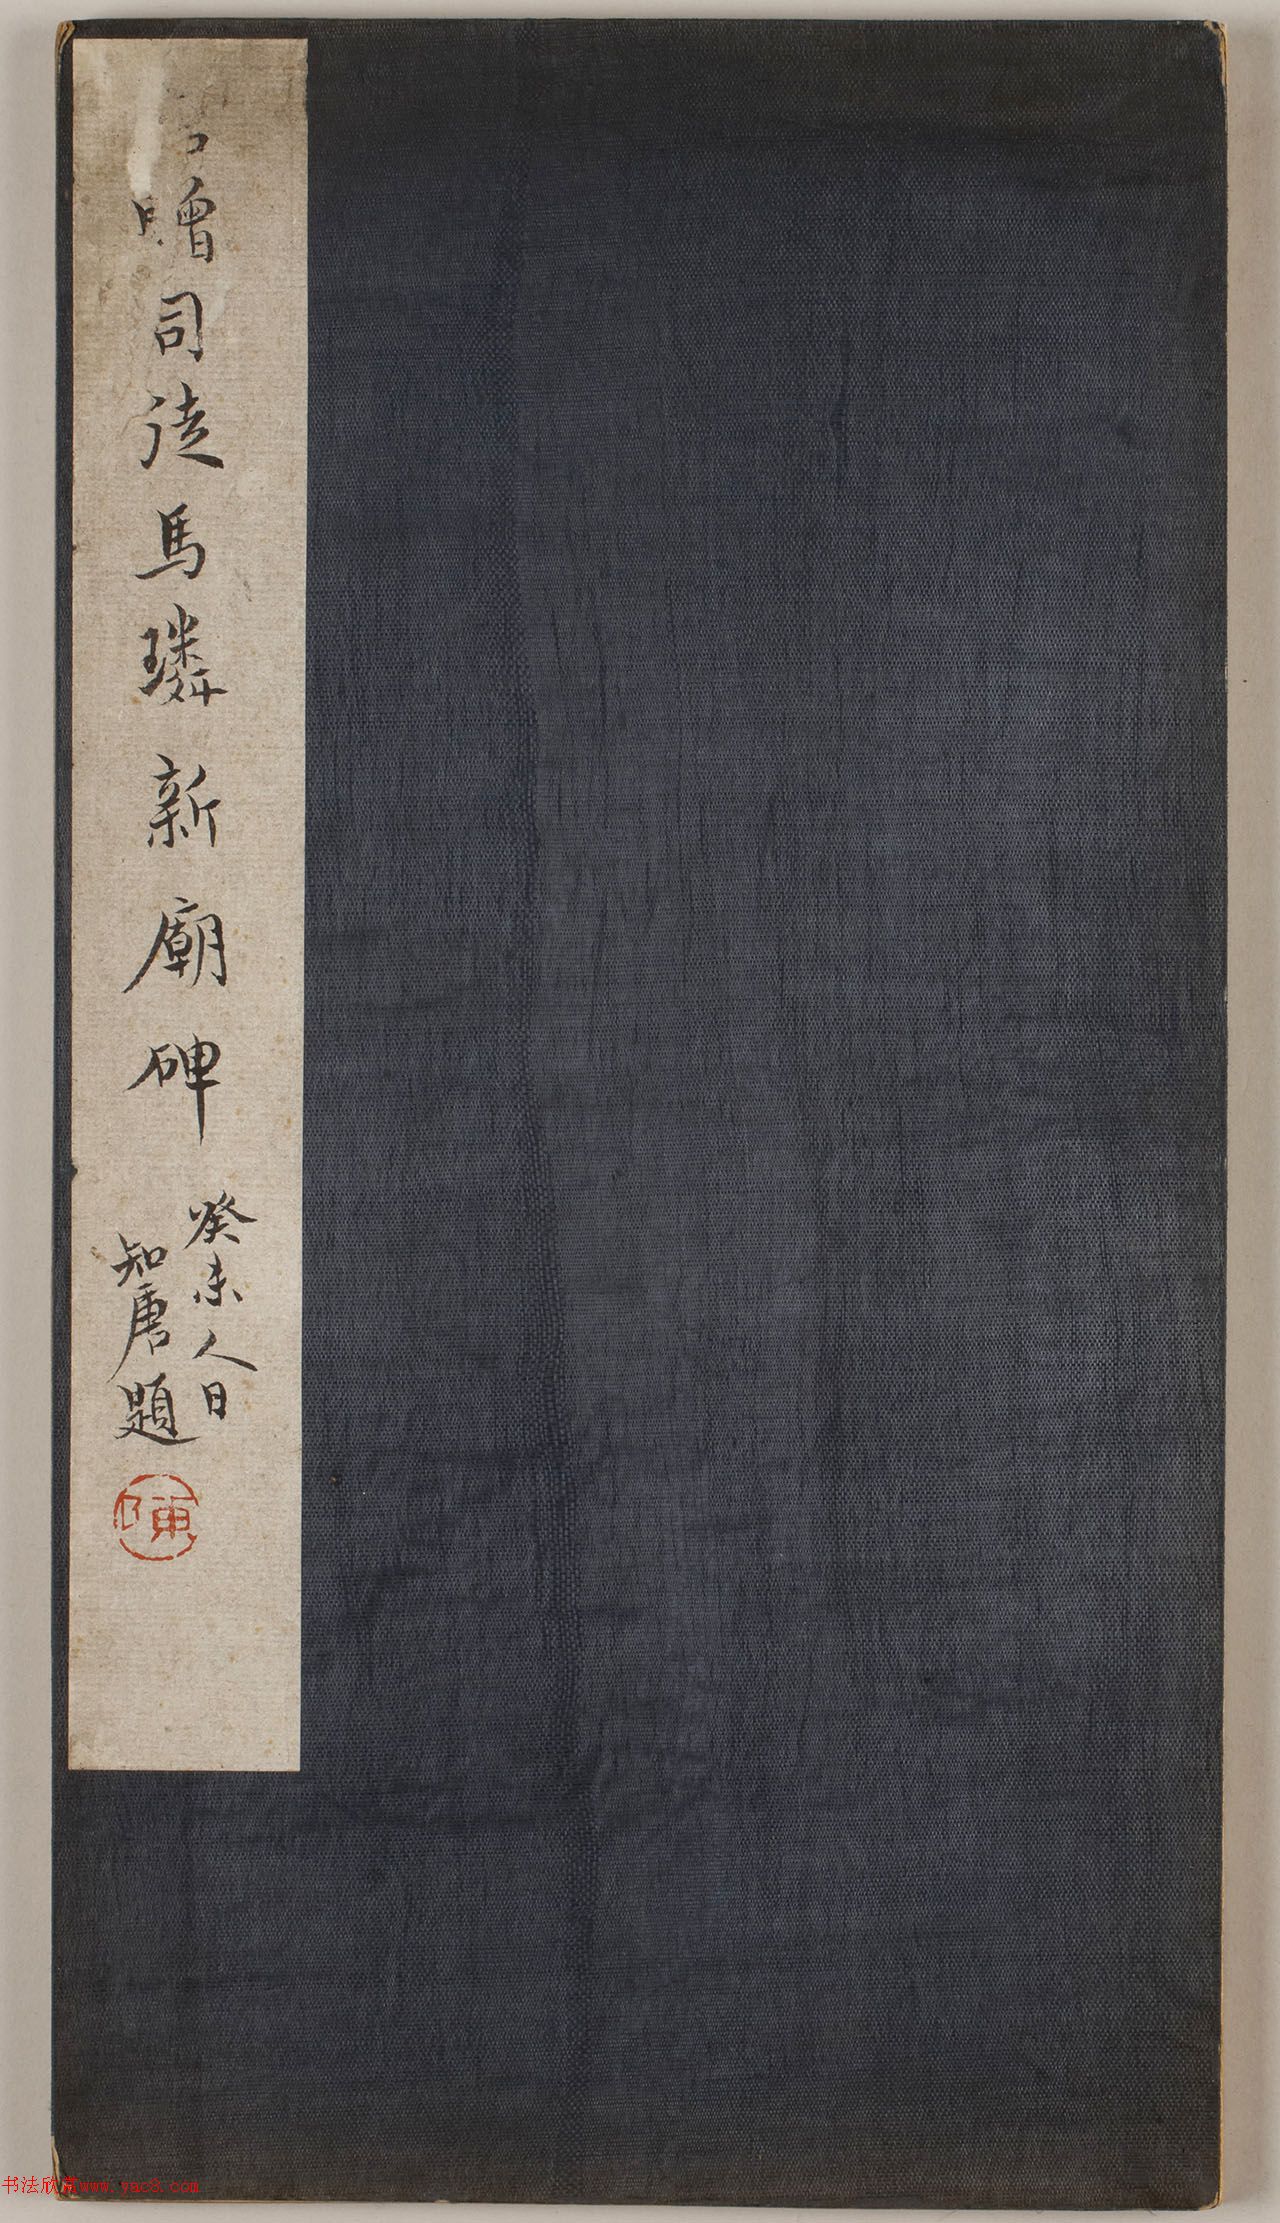 贈司徒馬璘新廟碑
癸未人日
知唐題
书法欣赏www.yac8.com